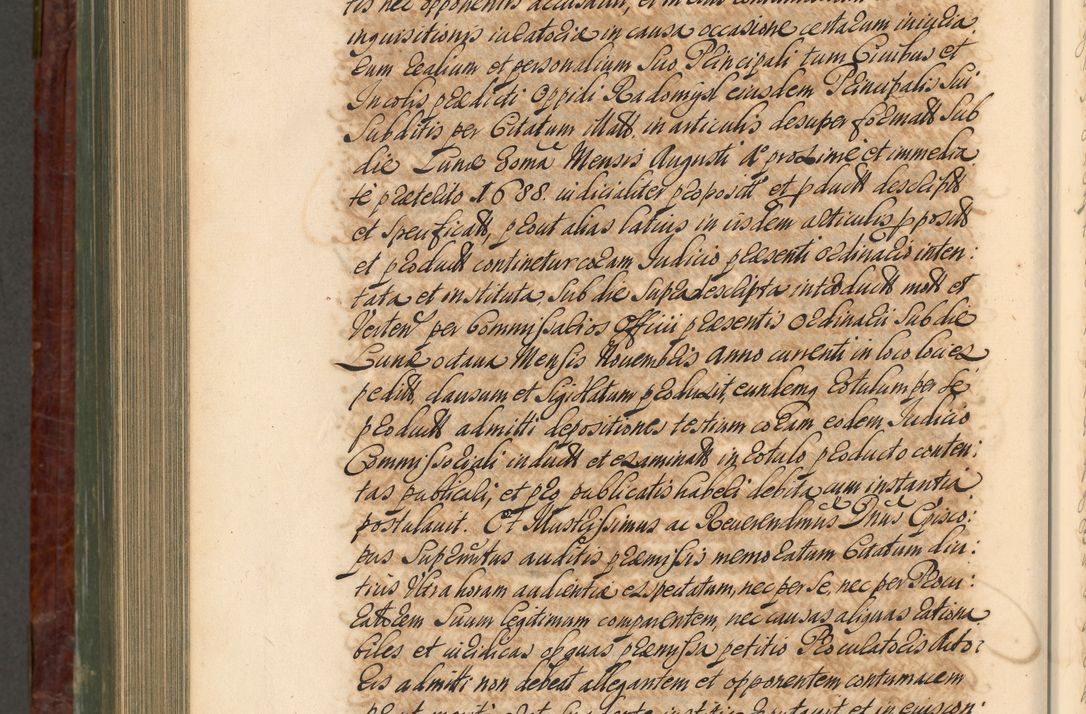 tis nec opponentis accusavit, et in eius contumaciam
inquisitionis iudicatoria in causa occasione certarum iniuria:
rum realium et personalium Suo Principali tum Civibus et
Incolis prædicti Oppidi Radomysl eiusdem Principalis sui
Subditis per Citatum illatt. in articulis desuper formatt. Sub
die Lunæ Mensis Augusti Aº proxime et immedia
te præterito 1688. iudicialiter propositt. et productt. descriptt.
et specificatt, prout alias latius in iisdem articulis propositt
et productt continetur coram Judicio præsenti ordinario inten:
tata et instituta, Sub die supra descripta introductt mott et
Verten per Commissarios Officii præsentis Ordinarii Sub die
Lunæ octava Mensis Novembris anno currenti in loco loci ex
peditt, clausum et sigillatum produxit, eundemq rotulum per se
productt admitti depositiones testium coram eodem Judicio
Commissoriali inductt et examinatt in rotulo producto conten:
tas publicari, et pro publicatis haberi debita cum instantia
postulavit. Et Illustrissimus ac Reverendmus Dnus Episco:
pus Supranttus auditis præmissis memoratum Citatum diu:
tius Ultra horam audientiæ expectatum, nec per se, nec per Procu:
ratorem Suum legitimum comparentem, nec causas aliquas rationa
biles et iuridicas ob quas præmissa petitio Procuratoris Acto:
ris admitti non debeat allegantem et opponentem contumacem